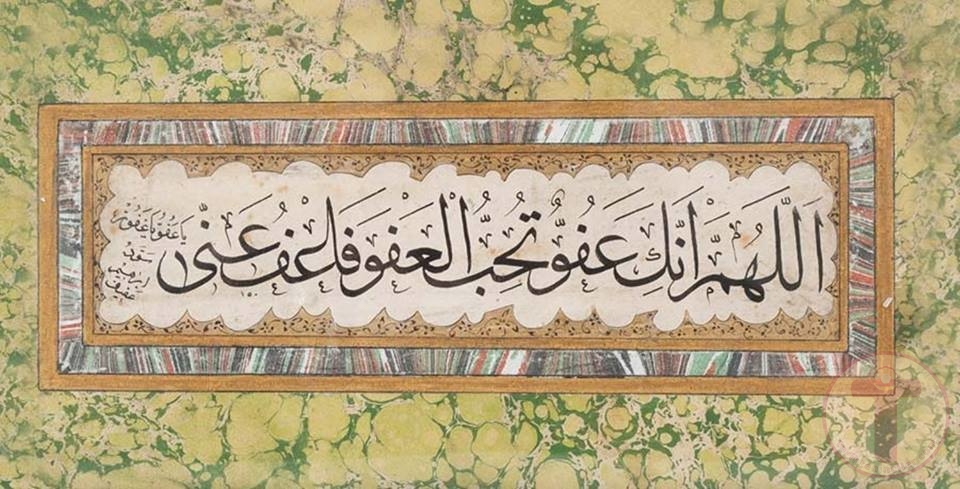 اللّٰهُمَّ اِنَّكَ عَفُوٌّ تُحِبُّ الْعَفْوَ فَاعْفُ عَنّٖى
يا عفو يا غفور